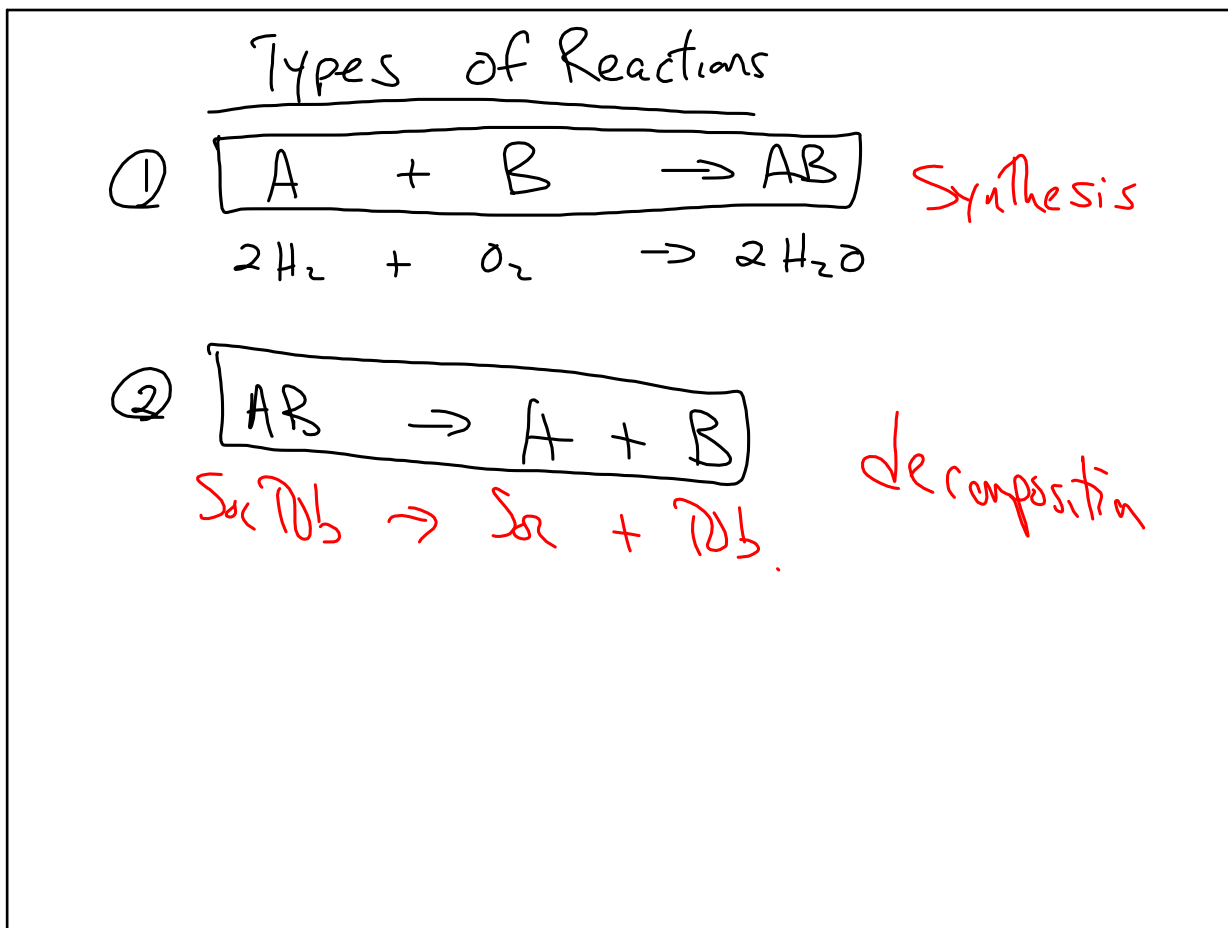 Types of Reactions
① A + B → AB Synthesis
2H₂ + O₂ → 2H₂O
② AB → A + B
decomposition
→ +